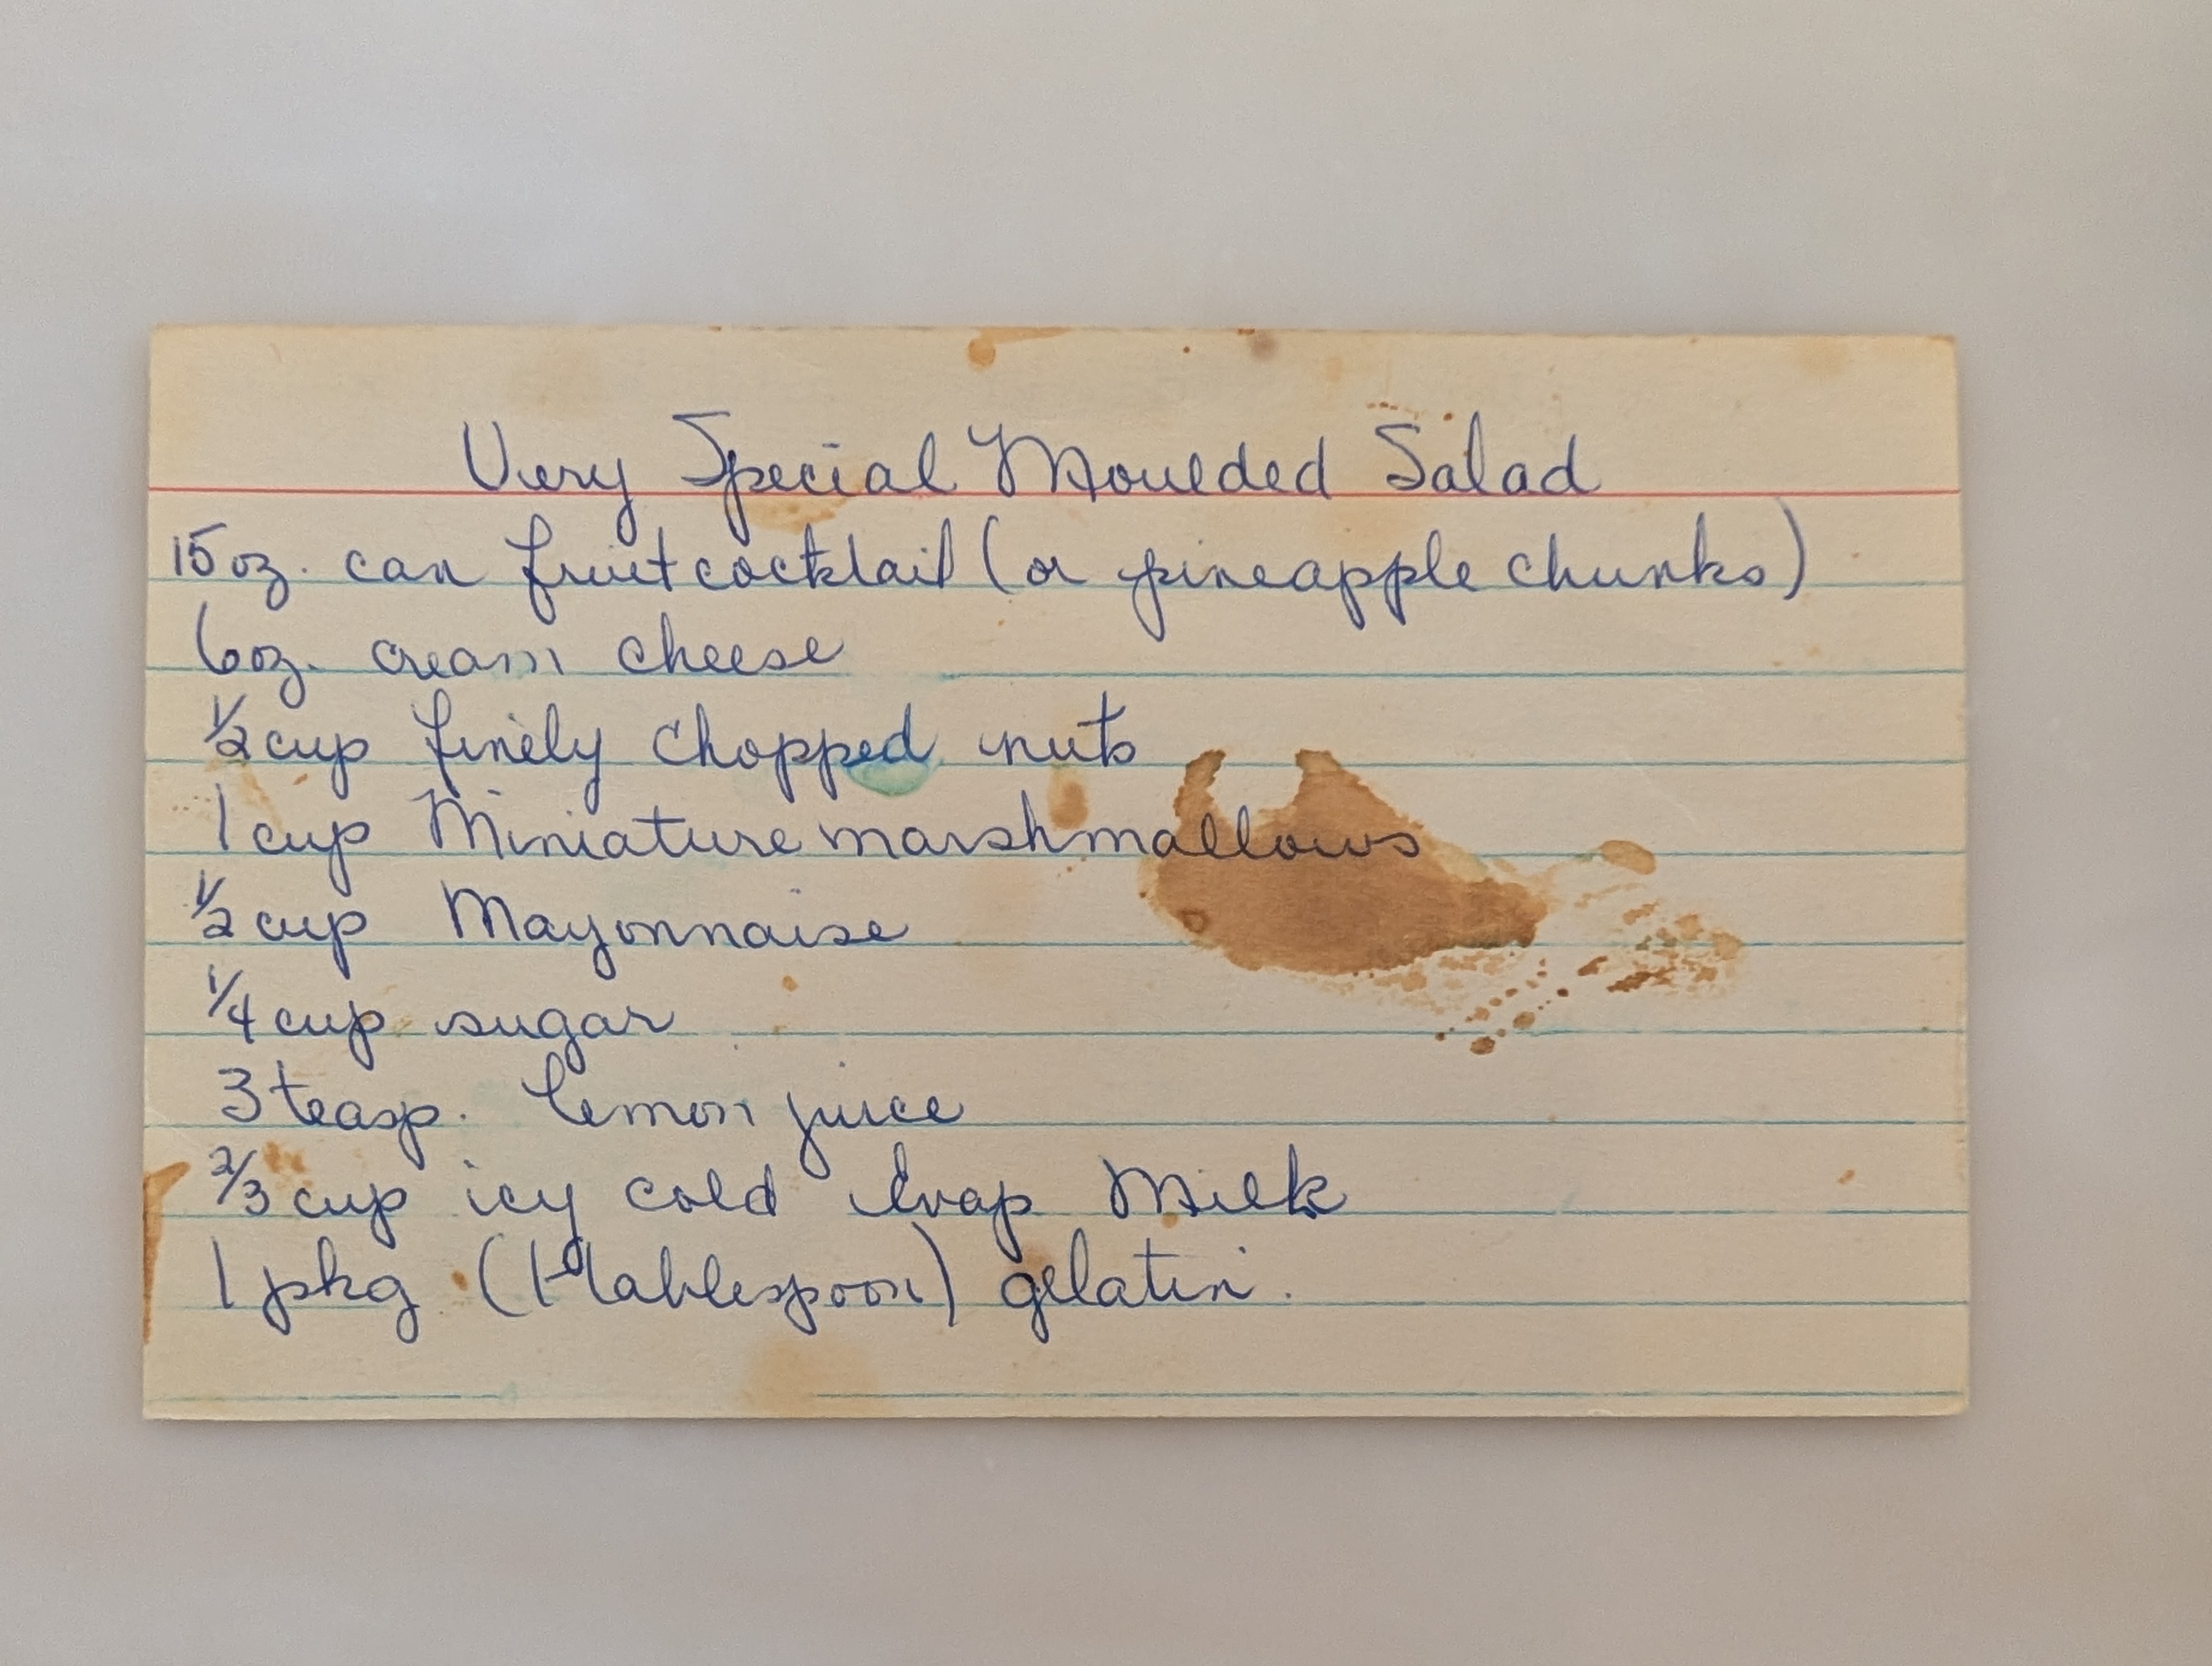 Very Special Moulded Salad
15 oz. can fruit cocktail (or pineapple chunks)
6 oz. cream cheese
1/2 cup finely chopped nuts
1 cup Miniature marshmallows
1/2 cup Mayonnaise
1/4 cup sugar
3 teasp. lemon juice
2/3 cup icy cold Evap Milk
1 pkg (1 tablespoon) gelatin.